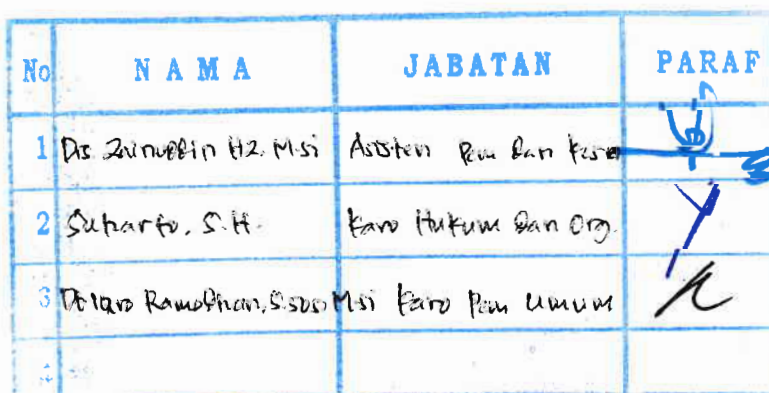 No NAMA JABATAN PARAF
1 Drs Zainuddin HZ. M.si Asisten Pem dan Kesra
2 Suharto, S.H. Karo Hukum dan Org.
3 Ramadhan, S.sos, M.si Karo Pem Umum
4